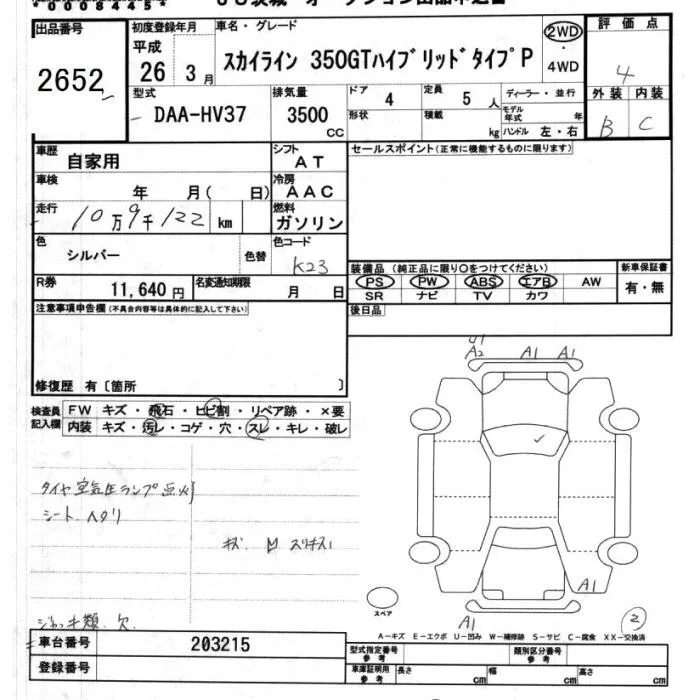 *00084454*
JU茨城 オークション出品申込書
出品番号
2652
初度登録年月
平成
26 3月
車名・グレード
スカイライン 350GTハイブリッドタイプP
2WD
4WD
評価点
4
型式
DAA-HV37
排気量
3500
CC
ドア
4
定員
5 人
形状
積載
kg
ディーラー・並行
モデル年式 年
ハンドル 左・右
外装 内装
B C
車歴
自家用
シフト
AT
セールスポイント(正常に機能するものに限ります)
車検
年 月( 日)
冷房
AAC
走行
10万9千122 km
燃料
ガソリン
色
シルバー
色替
色コード
K23
装備品 (純正品に限り○をつけてください)
PS PW ABS エアB AW
SR ナビ TV カワ
新車保証書
有・無
R券
11,640 円
名変通知期限
月 日
後日品
注意事項申告欄(不具合内容等は具体的に記入して下さい)
修復歴 有〔箇所 〕
検査員記入欄
FW キズ・飛石・ヒビ割・リペア跡・×要
内装 キズ・汚レ・コゲ・穴・スレ・キレ・破レ
U1
A2 A1 A1
タイヤ空気圧ランプ点火
シートヘタリ
キズ M スリキズ1
A1
ジャッキ類 欠
スペア
A1
2
A-キズ E-エクボ U-凹み W-補修跡 S-サビ C-腐食 XX-交換済
車台番号
203215
型式指定番号
参考
類別区分番号
参考
登録番号
車庫証明用
参考
長さ cm
幅 cm
高さ cm